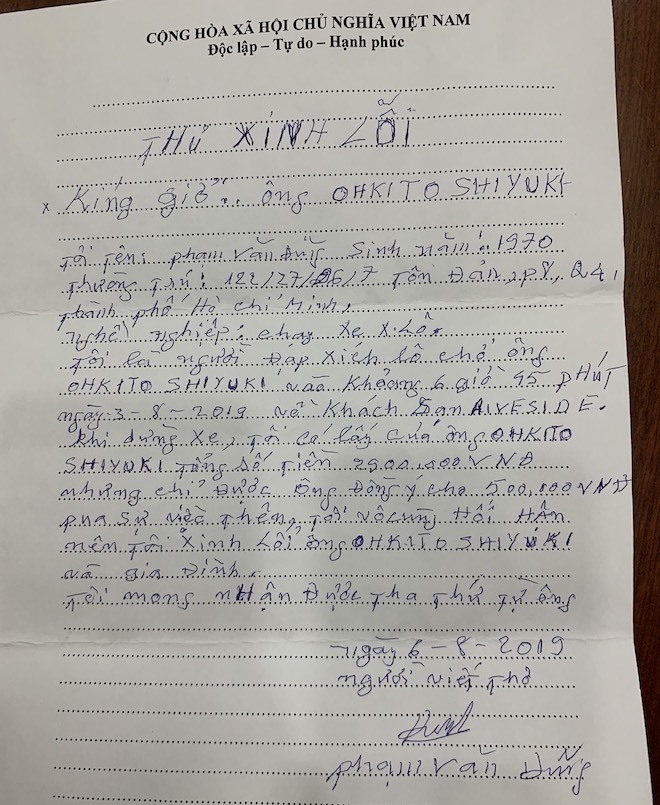 CỘNG HÒA XÃ HỘI CHỦ NGHĨA VIỆT NAM
Độc lập – Tự do – Hạnh phúc
THƯ XINH LỖI
x Kíng giở.. ông OHKITO SHIYUKI
Tôi tên: phạm Văn Dũng Sinh năm: 1970
Thường trú: 122/27/26/7 Tôn Đản, p8, Q4,
thành phố Hồ chí Minh,
nghề nghiệp: chạy xe x.Lô.
Tôi là người Đáp xích lô chở ông
OHKITO SHIYUKI vào khoảng 6 giờ 45 PHÚT
ngày 3-8-2019 về khách sạn RIVESIDE.
khi dừng xe, tôi có lấy của ông OHKITO
SHIYUKI tổng số tiền 2900.000 VNĐ
nhưng chỉ được ông Đồng ý cho 500,000 VNĐ
qua sự việc trên, tôi vô cùng Hối HẬN
nên tôi xinh Lỗi ông OHKITO SHIYUKI
và gia Đình.
Tôi mong nHận Được tha thứ từ ông
ngày 6-8-2019
người viết thơ
phạm Văn Dũng